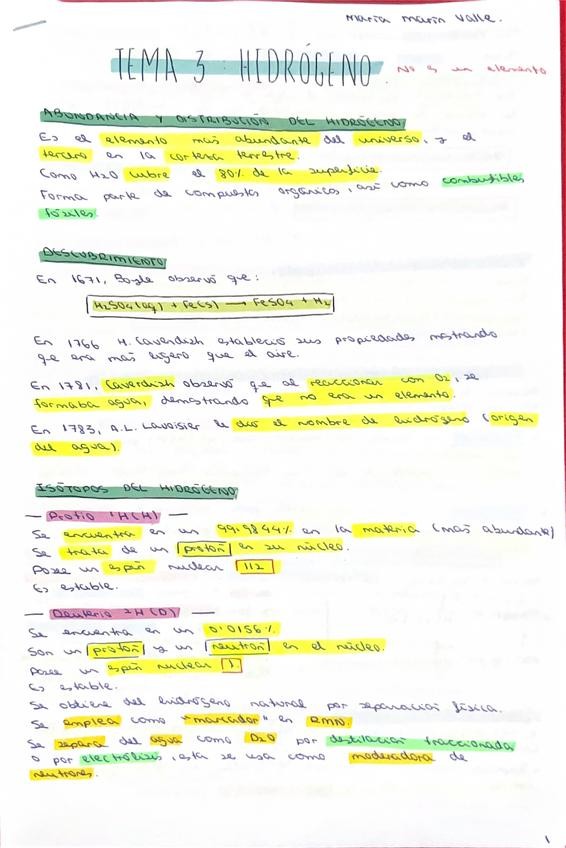 Maria Marin Valle.
TEMA 3: HIDRÓGENO. No es un elemento
ABUNDANCIA Y DISTRIBUCIÓN DEL HIDRÓGENO
Es el elemento más abundante del universo, y el
tercero en la corteza terrestre.
Como H2O cubre el 80% de la superficie.
Forma parte de compuestos orgánicos, así como combustibles
fósiles.
DESCUBRIMIENTO
En 1671, Boyle observó que:
H2SO4(aq) + Fe(s) → FeSO4 + H2
En 1766 H. Cavendish estableció sus propiedades mostrando
que era más ligero que el aire.
En 1781, Cavendish observó que al reaccionar con O2, se
formaba agua, demostrando que no era un elemento.
En 1783, A.L. Lavoisier le dio el nombre de hidrógeno (origen
del agua).
ISÓTOPOS DEL HIDRÓGENO
— Protio ¹H(H) —
Se encuentra en un 99.9844% en la materia (más abundante)
Se trata de un protón en su núcleo.
Posee un espín nuclear 1/2
Es estable.
— Deuterio ²H(D) —
Se encuentra en un 0'0156%
Son un protón y un neutrón en el núcleo.
Posee un espín nuclear 1
Es estable.
Se obtiene del hidrógeno natural por separación física.
Se emplea como "marcador" en RMN.
Se separa del agua como D2O por destilación fraccionada
o por electrólisis, esta se usa como moderadora de
neutrones.
1